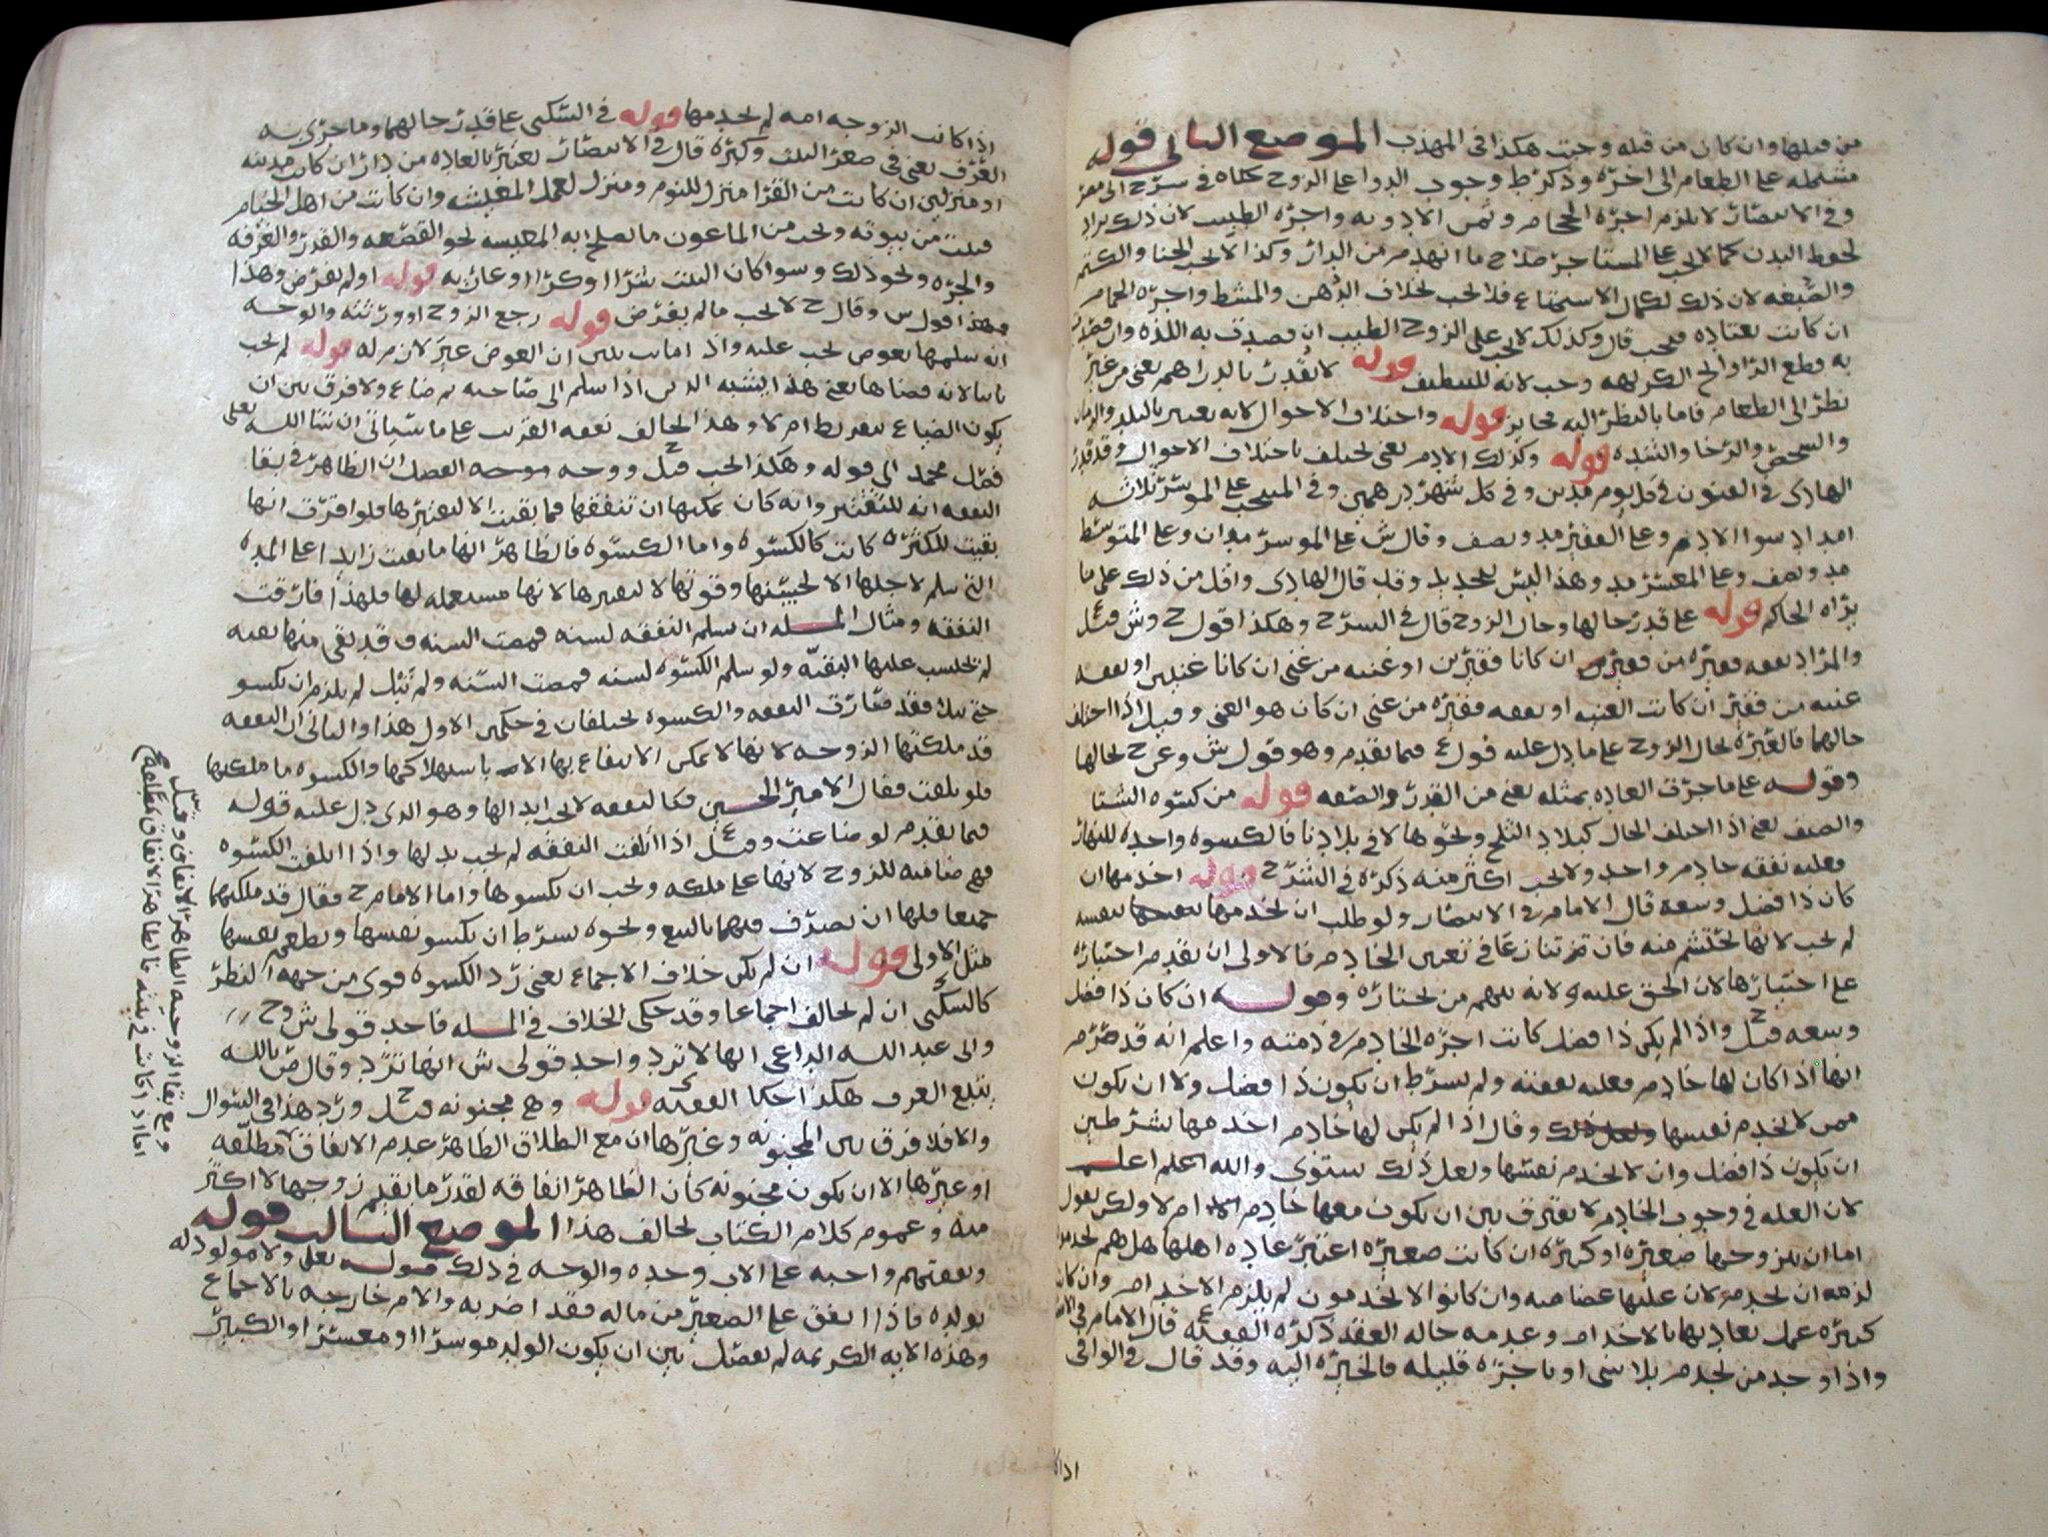 من قبلها وان كان من قبله وجبت هكذا في المهذب الموضع الثاني قوله
مشتمله على الطعام الى اخره وذكر ط وجوب الدوا على الزوج حكاه في شرح الى مضر
وفي الانتصار لا يلزم اجرة الحجام وثمن الادويه واجره الطبيب لان ذلك يراد
لحفظ البدن كما لا يجب على المستاجر صلاح ما انهدم من الدار وكذا لا يجب الحنا والكتم
والصبغه لان ذلك لكمال الاستمتاع فلا يجب بخلاف الدهن والمشط واجرة الحمام
ان كانت تعتاده فيجب قال وكذلك لا يجب على الزوج الطيب ان قصدت به اللذه وان قصدت
به قطع الروائح الكريهه وجب لانه للتنظيف قوله لا تقدر بالدراهم يعني من غير
نظر الى الطعام فاما بالنظر اليه فجايز قوله واختلاف الاحوال لانه يعتبر بالبلد والزمان
والرخص والرخا والشده قوله وكذلك الادم يعني يختلف باختلاف الاحوال وقد قدر
الهادي في الفنون في كل يوم مدين وفي كل شهر درهمين وفي المنتخب على الموسر ثلاثه
امداد سوا الادم وعلى الفقير مد ونصف وقال ش على الموسر مدان وعلى المتوسط
مد ونصف وعلى المعسر مد وهذا ليس بتحديد وقد قال الهادي واقل من ذلك على ما
يراه الحاكم قوله على قدر حالها وحال الزوج قال في الشرح وهكذا قول ح وش قيل
والمراد نفقه فقيره من فقير ان كانا فقيرين او غنيه من غني ان كانا غنيين او نفقه
غنيه من فقير ان كانت الغنيه او نفقه فقيره من غني ان كان هو الغني وقيل اذا اختلف
حالهما فالعبرة بحال الزوج على ما دل عليه قول ع فيما تقدم وهو قول ش وعن ح بحالها
وقوله على ما جرت العاده بمثله يعني من القدر والصفه قوله من كسوه الشتا
والصيف يعني اذا اختلف الحال كبلاد الثلج ونحوها لا في بلادنا فالكسوه واحده للنهار
فعليه نفقه خادم واحد ولا يجب اكثر منه ذكره في الشرح قوله اخدمها ان
كان ذا فضل وسعه قال الامام ي في الانتصار ولو طلب ان يخدمها بنفسه
لم يجب لانها تحتشم منه فان تنازعا في تعيين الخادم فالاولى ان يقدم اختياره
على اختيارها لان الحق عليه ولانه يتهم من تختاره وقوله ان كان ذا فضل
وسعه قيل ح واذا لم يكن ذا فضل كانت اجرة الخادم في ذمته واعلم انه قد صرح م
انها اذا كان لها خادم فعليه نفقته ولم يشرط ان يكون ذا فضل ولا ان يكون
ممن لا يخدم نفسها وقال اذا لم يكن لها خادم اخدمها بشرطين
ان يكون ذا فضل وان لا تخدم نفسها ولعل ذلك ستوى والله اعلم
لان العله في وجوب الخادم لا تفترق بين ان يكون معها خادم ام لا ولكن نقول
اما ان يتزوجها صغيره او كبيره ان كانت صغيره اعتبر عاده اهلها هل هم يخدمون
لزمه ان يخدمه لان عليها غضاضه وان كانوا لا يخدمون لم يلزم الاخدام وان كانت
كبيره عمل بعادتها بالاخدام وعدمه حاله العقد ذكره الفقيه ع قال الامام في الانتصار
واذا وجد من يخدم بلا شي او باجره قليله فالخيره اليه وقد قال في الوافي
اذا كا
اذا كانت الزوجه امه لم يخدمها قوله في السكنى على قدر حالهما وما جرى به
العرف يعني في صغر البيت وكبره قال في الانتصار يعتبر بالعاده من دار ان كانت مدينه
او منزلين ان كانت من القرا منزل للنوم ومنزل لعمل المعيشه وان كانت من اهل الخيام
فبيت من بيوته ويجب من الماعون ما يصلح به المعيشه نحو القصعه والقدر والغرفه
والجره ونحو ذلك وسوا كان البيت شرا او كرا او عاريه قوله او لم يفرض وهذا
فهذا قول س وقال ح لا يجب ما لم يفرض قوله رجع الزوج او ورثته والوجه
انه سلمها بعوض يجب عليه واذا ماتت تبين ان العوض غير لازم له قوله لم يجب
ثانيا لانه قضاها يعني هذا يشبه الدين اذا سلم الى صاحبه ثم ضاع ولا فرق بين ان
يكون الضياع بتفريط ام لا وهذا يخالف نفقه القريب على ما سياتي ان شا الله تعالى
فصل محمد الى قوله وهكذا يجب قيل ح ووجه الفصل ان الظاهر في بقا
النفقه انه للتقتير وانه كان يمكنها ان تنفقها فما بقيت الا لتقتيرها فلو اقرت انها
بقيت للكثره كانت كالكسوه واما الكسوه فالظاهر انها ما بقت زايدا على المده
التي سلم لاجلها الا لجنسها وقوتها لا لتقتيرها لانها مستعمله لها فلهذا فارقت
النفقه ومثال المسله ان سلم النفقه لسنه فمضت السنه وقد بقى منها بقيه
لم تحتسب عليها البقيه ولو سلم الكسوه لسنه فمضت السنه ولم تبل لم يلزم ان يكسو
حتى تبلى فقد فارقت النفقه والكسوه يختلفان في حكمين الاول هذا والثاني ان النفقه
قد ملكتها الزوجه لانها لا يمكن الانتفاع بها الا باستهلاكها والكسوه ما ملكتها
فلو تلفت فقال الامير الحسين فكالنفقه لا يجب ابدالها وهو الذي دل عليه قوله
فيما تقدم لو ضاعت وقيل ع اذا اتلفت النفقه لم يجب بدلها واذا اتلفت الكسوه
فهي ضامنه للزوج لانها على ملكه ويجب ان يكسوها واما الامام ح فقال قد ملكتهما
جميعا فلها ان تصرف فيهما بالبيع ونحوه بشرط ان تكسو نفسها وتطعم نفسها
مثل الاولى قوله ان لم يكن خلاف الاجماع يعني رد الكسوه قوي من جهه النظر
كالسكنى ان لم يخالف اجماعا وقد حكى الخلاف في المسله فاحد قولي ش وح
وابى عبد الله الداعي انها لا ترد واحد قولي ش انها ترد وقال ص بالله
يتبع العرف هكذا حكا الفقيه ي قوله وهي مجنونه قيل ح ورد هذا في السوال
والا فلا فرق بين المجنونه وغيرها ان مع الطلاق الظاهر عدم الانفاق مطلقه
او غيرها الا ان يكون مجنونه كان الظاهر انفاقه لقدر ما تقدم زوجها لا اكثر
منه وعموم كلام الكتاب يخالف هذا الموضع الثالث قوله
ونفقتهم واجبه على الاب وحده والوجه في ذلك قوله تعلى ولا مولود له
بولده فاذا انفق على الصغير من ماله فقد اضر به والام خارجه بالاجماع
وهذه الايه الكريمه لم تفصل بين ان يكون الولد موسرا او معسرا او الكبير
ومع بقا الزوجيه الظاهر الانفاق وقيل
اما اذا كانت في بيته فالظاهر الانفاق مطلقه